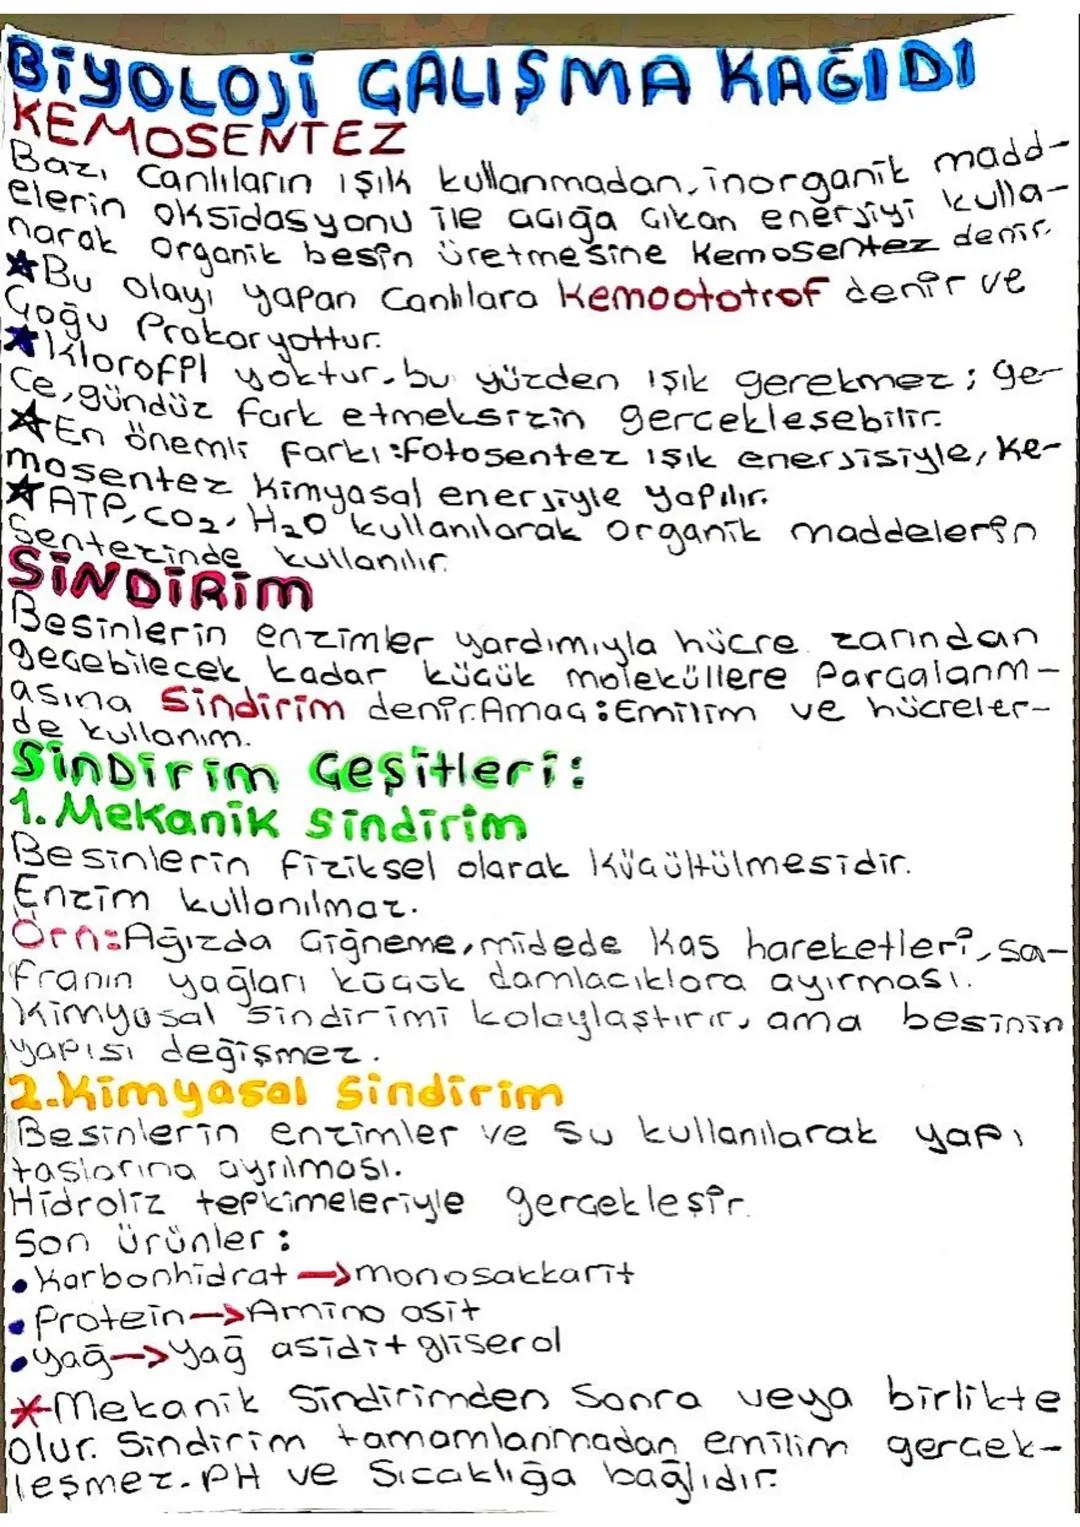 BİYOLOJİ ÇALIŞMA KAĞIDI
KEMOSENTEZ
Bazı Canlıların ışık kullanmadan, inorganik madd-
elerin oksidasyonu ile açığa çıkan enerjiyi kulla-
narak organik besin üretmesine Kemosentez denir.
★Bu olayı yapan Canlılara Kemoototrof denir ve
Çoğu Prokaryottur.
★Klorofil yoktur. bu yüzden ışık gerekmez; ge-
ce, gündüz fark etmeksizin gerçekleşebilir.
★En önemli farkı: fotosentez ışık enerjisiyle, Ke-
mosentez Kimyasal enerjiyle yapılır.
★ATP, CO2, H2O kullanılarak organik maddelerin
Sentezinde kullanılır.
SİNDİRİM
Besinlerin enzimler yardımıyla hücre zarından
geçebilecek kadar küçük moleküllere Parçalanm-
asına Sindirim denir. Amaç: Emilim ve hücreler-
de kullanım.
Sindirim Çeşitleri:
1. Mekanik Sindirim
Besinlerin fiziksel olarak Küçültülmesidir.
Enzim kullanılmaz.
Örn: Ağızda Çiğneme, midede Kas hareketleri, sa-
franın yağları küçük damlacıklara ayırması.
Kimyasal Sindirimi kolaylaştırır, ama besinin
yapısı değişmez.
2. Kimyasal Sindirim
Besinlerin enzimler ve su kullanılarak yapı
taşlarına ayrılması.
Hidroliz tepkimeleriyle gerçekleşir.
Son ürünler:
• Karbonhidrat → monosakkarit
• Protein → Amino asit
• yağ → yağ asidi + gliserol
*Mekanik Sindirimden Sonra veya birlikte
olur. Sindirim tamamlanmadan emilim gerçek-
leşmez. PH ve Sıcaklığa bağlıdır.